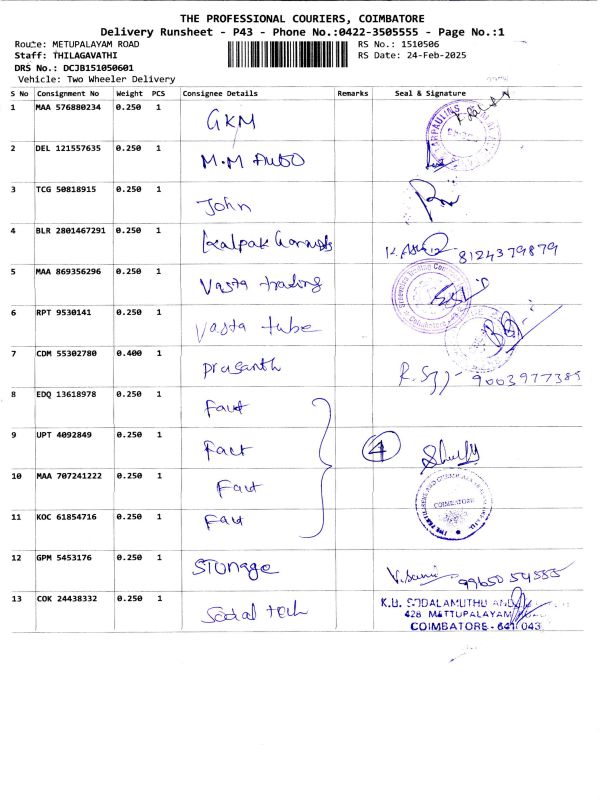 THE PROFESSIONAL COURIERS, COIMBATORE
Delivery Runsheet - P43 - Phone No.:0422-3505555 - Page No.:1
Route: METUPALAYAM ROAD
RS No.: 1510506
Staff: THILAGAVATHI
RS Date: 24-Feb-2025
DRS No.: DCJB151050601
Vehicle: Two Wheeler Delivery
S No Consignment No Weight PCS Consignee Details Remarks Seal & Signature
1 MAA 576880234 0.250 1 GKM
2 DEL 121557635 0.250 1 M.M Auto
3 TCG 50818915 0.250 1 John
4 BLR 2801467291 0.250 1 8124379879
5 MAA 869356296 0.250 1 Vasta trading
6 RPT 9530141 0.250 1 Vasta tube
7 CDM 55302780 0.400 1 prasanth 9003977385
8 EDQ 13618978 0.250 1 Fact
9 UPT 4092849 0.250 1 Fact 4
10 MAA 707241222 0.250 1 Fact
COIMBATORE
11 KOC 61854716 0.250 1 Fact
12 GPM 5453176 0.250 1 Storage 99650 54555
13 COK 24438332 0.250 1 tech
K.B. SODALAMUTHU AND
428 METTUPALAYAM
COIMBATORE - 641 043